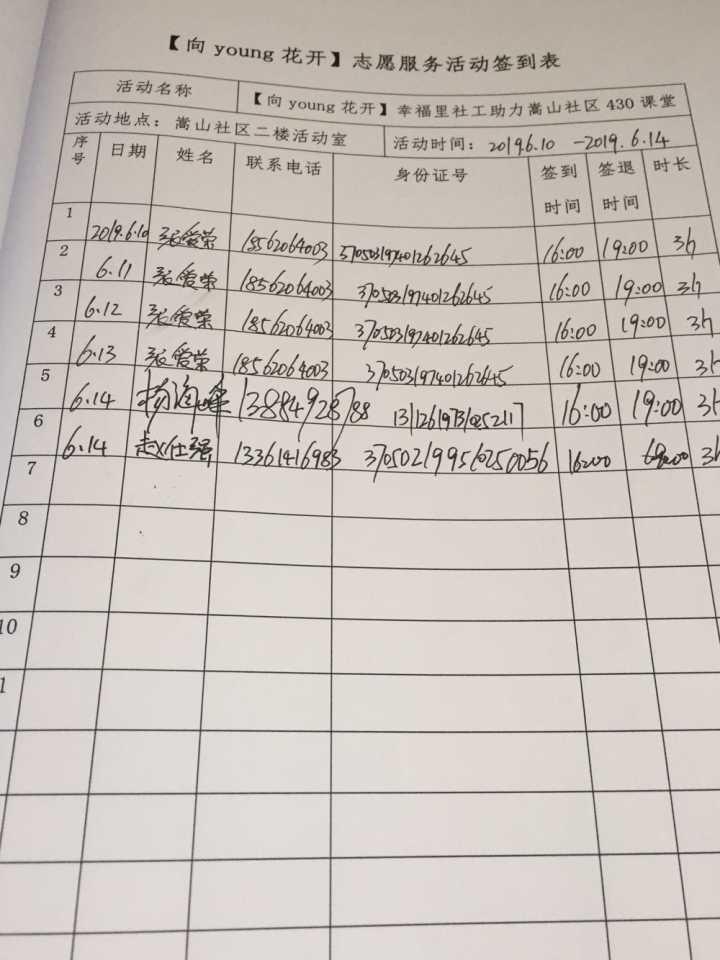 【向 young 花开】志愿服务活动签到表
活动名称 【向 young 花开】幸福里社工助力嵩山社区 430 课堂
活动地点：嵩山社区二楼活动室 活动时间：2019.6.10 -2019.6.14
序号 日期 姓名 联系电话 身份证号 签到时间 签退时间 时长
1 2019.6.10 张爱荣 18562064003 370503197401262645 16:00 19:00 3h
2 6.11 张爱荣 18562064003 370503197401262645 16:00 19:00 3h
3 6.12 张爱荣 18562064003 370503197401262645 16:00 19:00 3h
4 6.13 张爱荣 18562064003 370503197401262645 16:00 19:00 3h
5 6.14 13884928788 16:00 19:00 3h
6 6.14 赵仕强 13361416983 16:00 3h
7
8
9
10
1